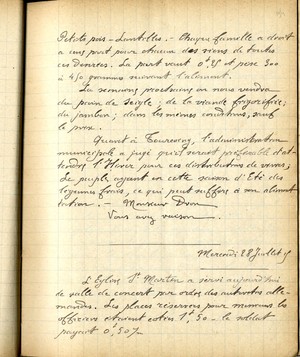 Petits pois - Lentilles. - Chaque famille a droit
à une part pour chacun des siens de toutes
ces denrées. La part vaut 0f,25 et pèse 300
à 450 grammes suivant l'aliment.
La semaine prochaine on nous vendra
du pain de seigle; de la viande frigorifiée;
du jambon; dans les mêmes conditions, sauf
le prix.
Quant à Tourcoing, l'administration
municipale a jugé qu'il serait préférable d'at-
tendre l'Hiver pour ces distributions de vivres,
le peuple ayant en cette saison d'Eté des
légumes frais, ce qui peut suffire à son alimen-
tation. - Monsieur Dron
Vous avez raison.
Mercredi 28 Juillet 15
L'Eglise St Martin a servi aujourd'hui
de salle de concert par ordre des autorités alle-
mandes. Les places réservées pour messieurs les
officiers étaient cotées 1f,50 - le soldat
payait 0,50